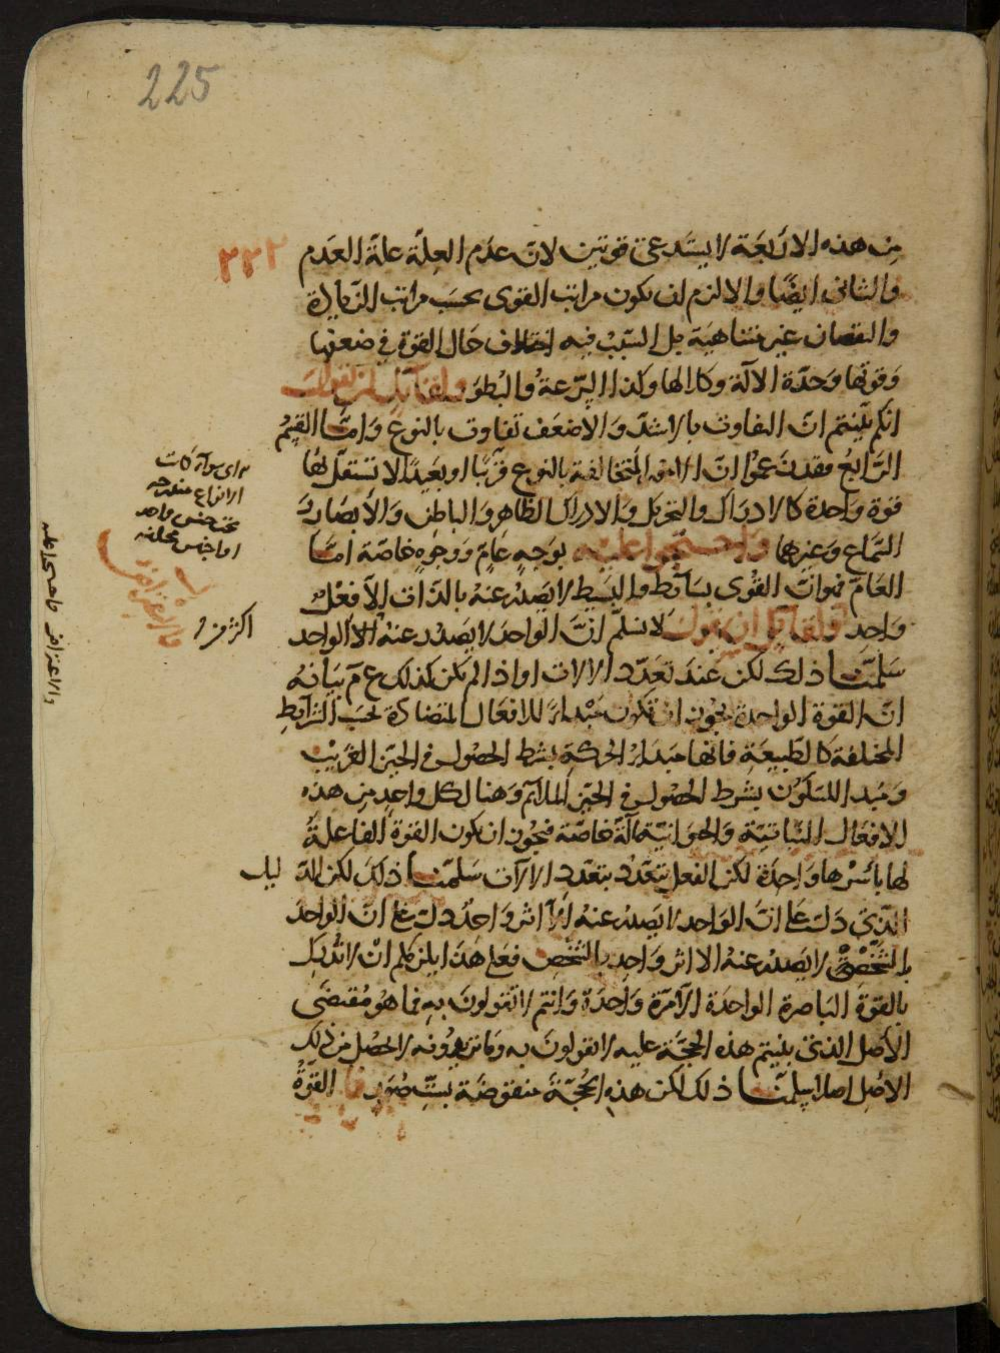 225
٢٢٢
من هذه الاربعة لا يستدعي قوتين لان عدم العلة علة العدم
والثاني ايضا والا لزم ان يكون مراتب القوى بحسب مراتب الزيادة
والنقصان غير متناهية بل السبب فيه اختلاف حال القوة في ضعفها
وقوتها وحدة الالة وكلالها وكذا السرعة والبطو ولقائل ان يقول
انكم بينتم ان التفاوت بالاشد والاضعف تفاوت بالنوع واما القسم
الرابع فقد زعموا ان المتخالفة بالنوع قريبا او بعيدا لا تستقل لها
قوة واحدة كالادراك والتحريك والادراك الظاهر والباطن والابصار و
السماع وغيرها واحتجوا عليه بوجه عام ووجوه خاصة اما
العام فهو ان القوى بسائط والبسيط لا يصدر عنه بالذات الا فعل
واحد ولقائل ان يقول لا نسلم ان الواحد لا يصدر عنه الا الواحد
سلمنا ذلك لكن عند تعدد الالات او اذا لم يكن كذلك ع م بيانه
ان القوة الواحدة يجوز ان تكون مبدا للافعال المتضادة بحسب الشرايط
المختلفة كالطبيعة فانها مبدا الحركة بشرط الحصول في الحيز الغريب
ومبدا للسكون بشرط الحصول في الحيز الملايم وهنا لكل واحد من هذه
الافعال النباتية والحيوانية آلة خاصة فيجوز ان يكون القوة الفاعلة
لها باسرها واحدة لكن الفعل يتعدد بتعدد الالات سلمنا ذلك لكن الد ليل
الذي دلت على ان الواحد لا يصدر عنه الا اثر واحد دلت على ان الواحد
بالشخص لا يصدر عنه الا اثر واحد بالشخص فعلى هذا يلزمكم ان لا تدرك
بالقوة الباصرة الواحدة الا مرة واحدة وانتم لا تقولون به فما هو مقتضى
الاصل الذي بنيتم هذه الحجة عليه لا تقولون به وما تريدونه لا يحصل من ذلك
الاصل اصلا سلمنا ذلك لكن هذه الحجة منقوضة بست صور القوة
اكثر من